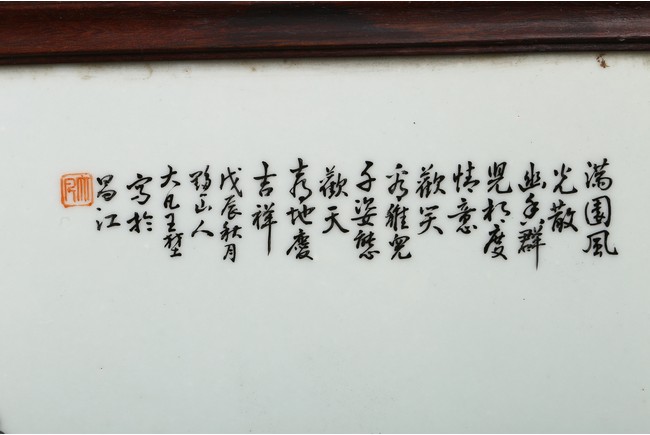 满園風
光散
幽香群
兒相度
情意
歡笑
看雅兒
子姿態
歡天
喜地慶
吉祥
戊辰秋月
黟山人
大凡王堃
寫於
昌江
大凡